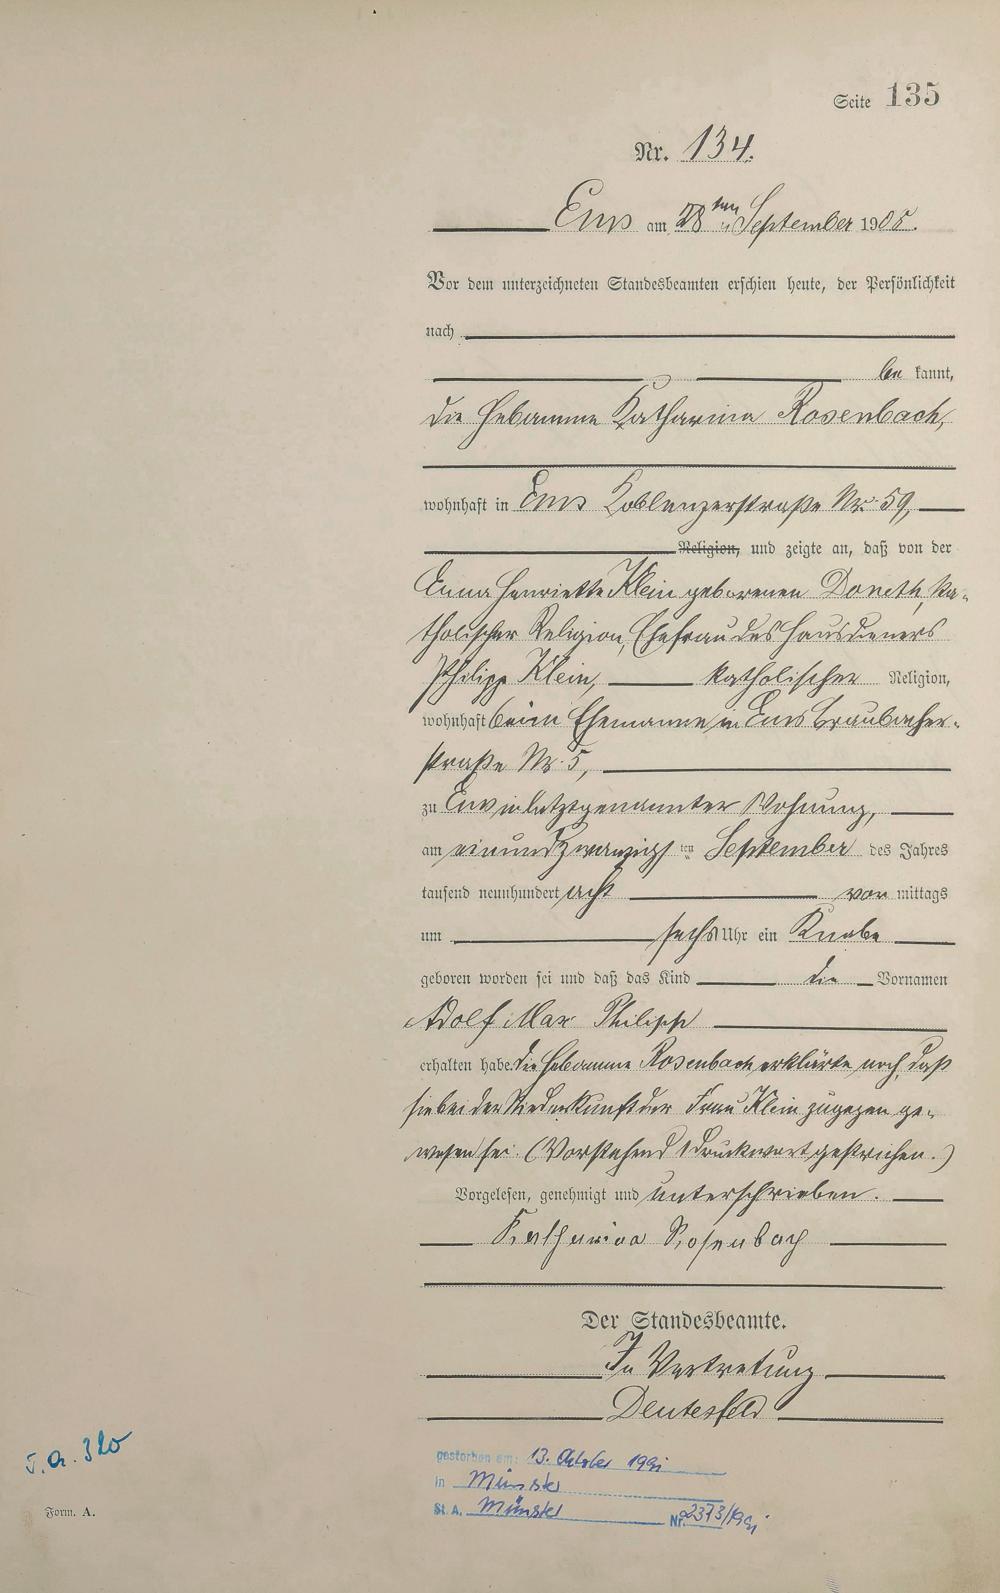 Seite 135
Nr. 134.
Ems am 28ten September 1908.
Vor dem unterzeichneten Standesbeamten erschien heute, der Persönlichkeit
nach
be kannt,
die Hebamme Katharina Rosenbach,
wohnhaft in Ems Koblenzerstraße Nr. 59,
Religion, und zeigte an, daß von der
Anna Henriette Klein geborenen Doneth, ka-
tholischer Religion, Ehefrau des Hausdieners
Philipp Klein, katholischer Religion,
wohnhaft beim Ehemanne in Ems Braubacher-
straße Nr. 5,
zu Ems in letztgenannter Wohnung,
am einundzwanzigsten September des Jahres
tausend neunhundert acht vor mittags
um sechs Uhr ein Knabe
geboren worden sei und daß das Kind die Vornamen
Adolf Max Philipp
erhalten habe. Die Hebamme Rosenbach erklärte noch, daß
sie bei der Niederkunft der Frau Klein zugegen ge-
wesen sei. (Vorstehend 1 Druckwort gestrichen.)
Vorgelesen, genehmigt und unterschrieben.
Katharina Rosenbach
Der Standesbeamte.
In Vertretung
Deutesfeld
gestorben am: 13. Oktober
in Münster
St. A. Münster Nr.
Form. A.